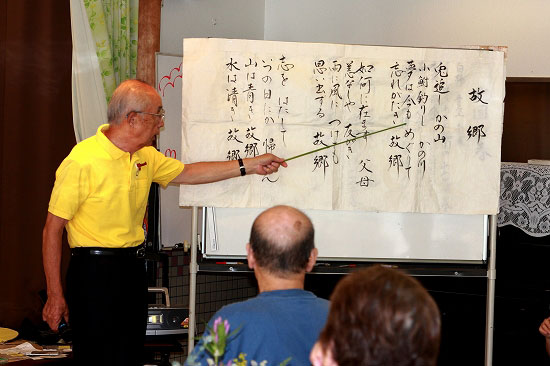 故郷
兎追いし かの山
小鮒釣りし かの川
夢は今も めぐりて
忘れがたき 故郷
如何に在ます 父母
恙なしや 友がき
雨に風に つけても
思い出ずる 故郷
志を はたして
いつの日にか 帰らん
山は青き 故郷
水は清き 故郷